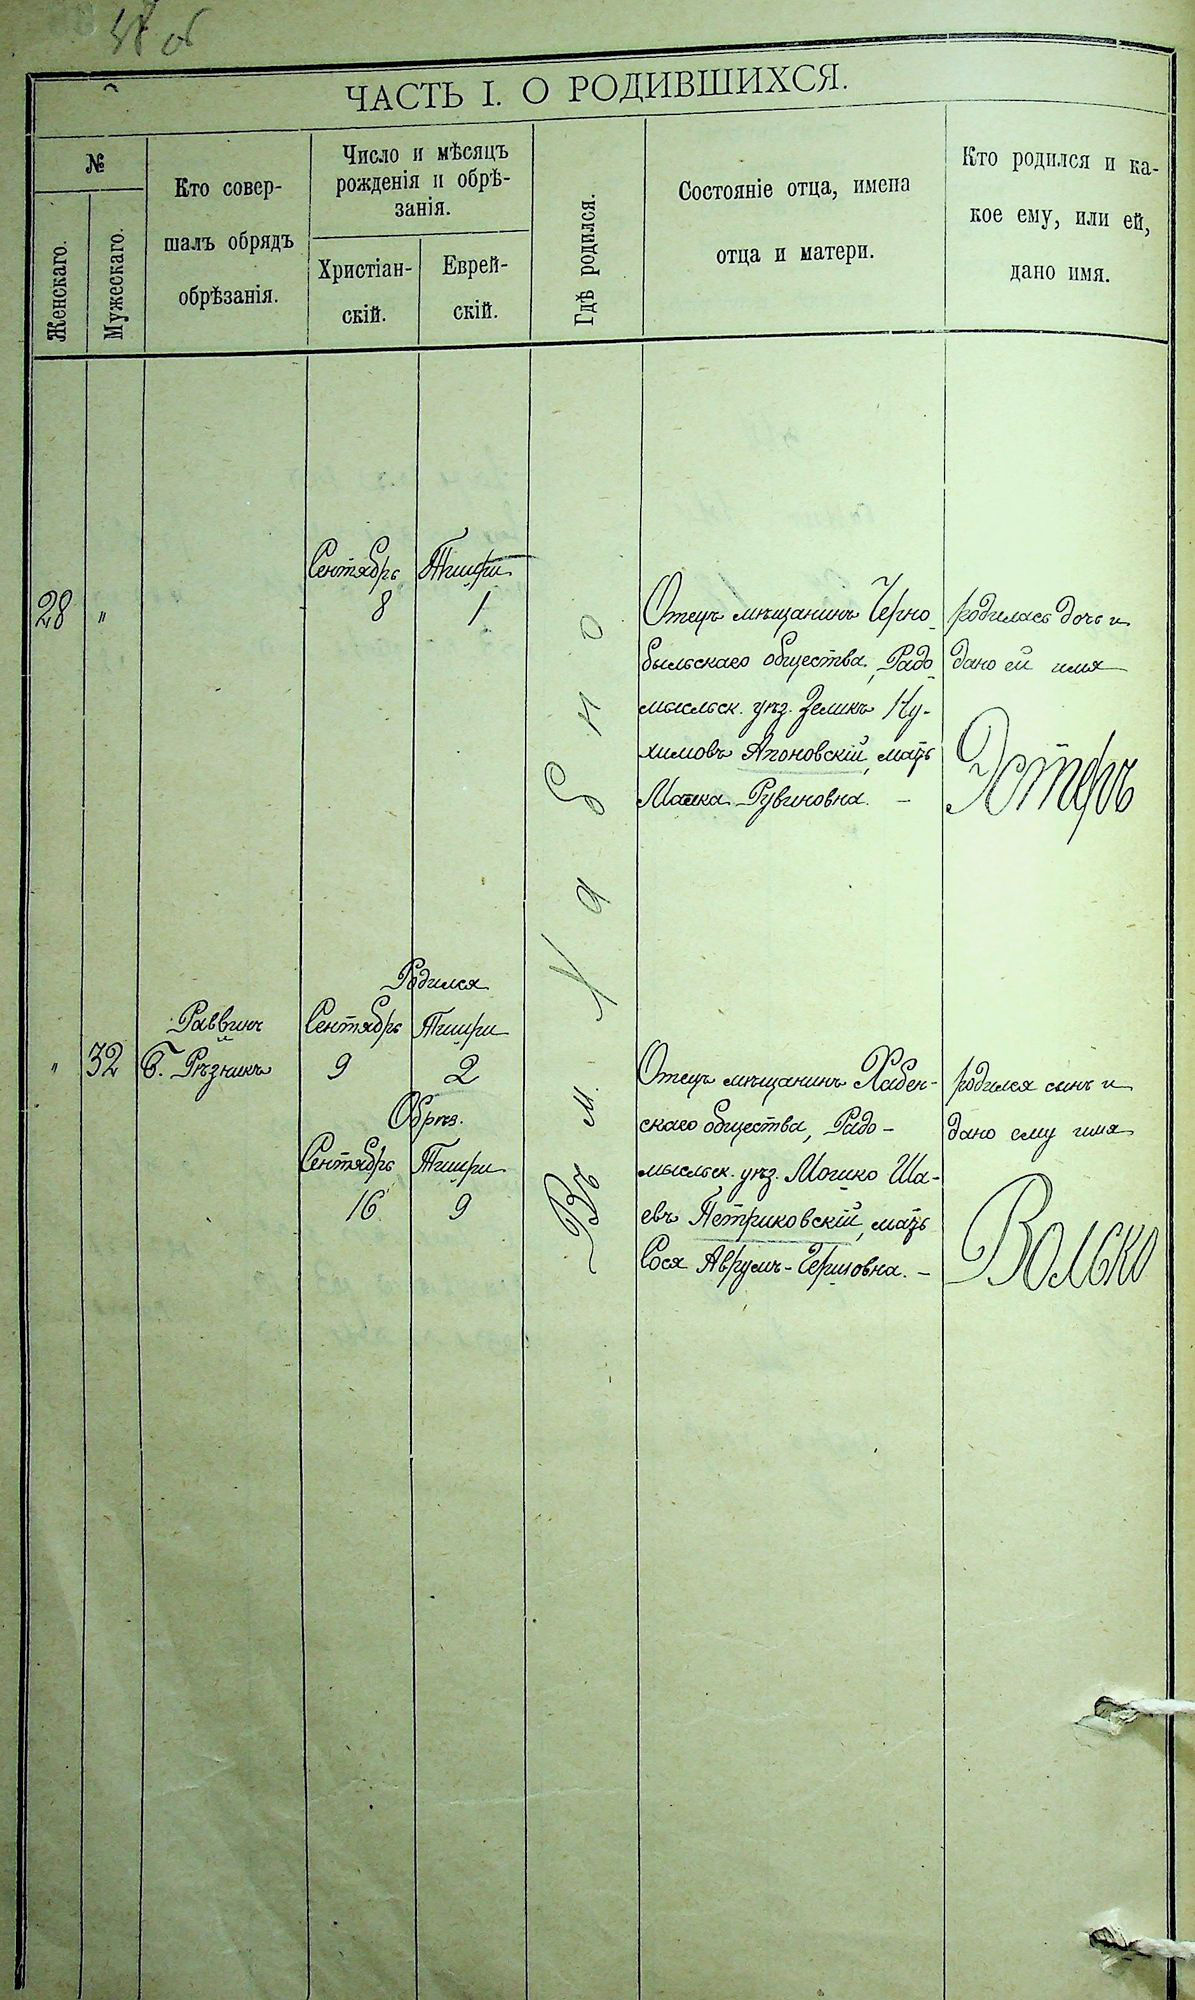 ЧАСТЬ I. О РОДИВШИХСЯ.
№
Женскаго.
Мужескаго.
Кто совер-
шалъ обрядъ
обрѣзанія.
Число и мѣсяцъ
рожденія и обрѣ-
занія.
Христіан-
скій.
Еврей-
скій.
Гдѣ родился.
Состояніе отца, имена
отца и матери.
Кто родился и ка-
кое ему, или ей,
дано имя.
28
"
Сентябрь
8
Тишри
1
Въ м. Хабно
Отецъ мѣщанинъ Черно-
быльскаго общества, Радо-
мысльск. уѣз. Зеликъ Ну-
химовъ Апоновскій, мать
Малка Рувиновна. –
родилась дочь и
дано ей имя
Эстеръ
"
32
Раввинъ
Б. Рѣзникъ
Родился
Сентябрь
9
Тишри
2
Обрѣз.
Сентябрь
16
Тишри
9
Отецъ мѣщанинъ Хабен-
скаго общества, Радо-
мысльск. уѣз. Мошко Ша-
евъ Петриковскій, мать
Сося Аврумъ-Гершовна. –
родился сынъ и
дано ему имя
Волько